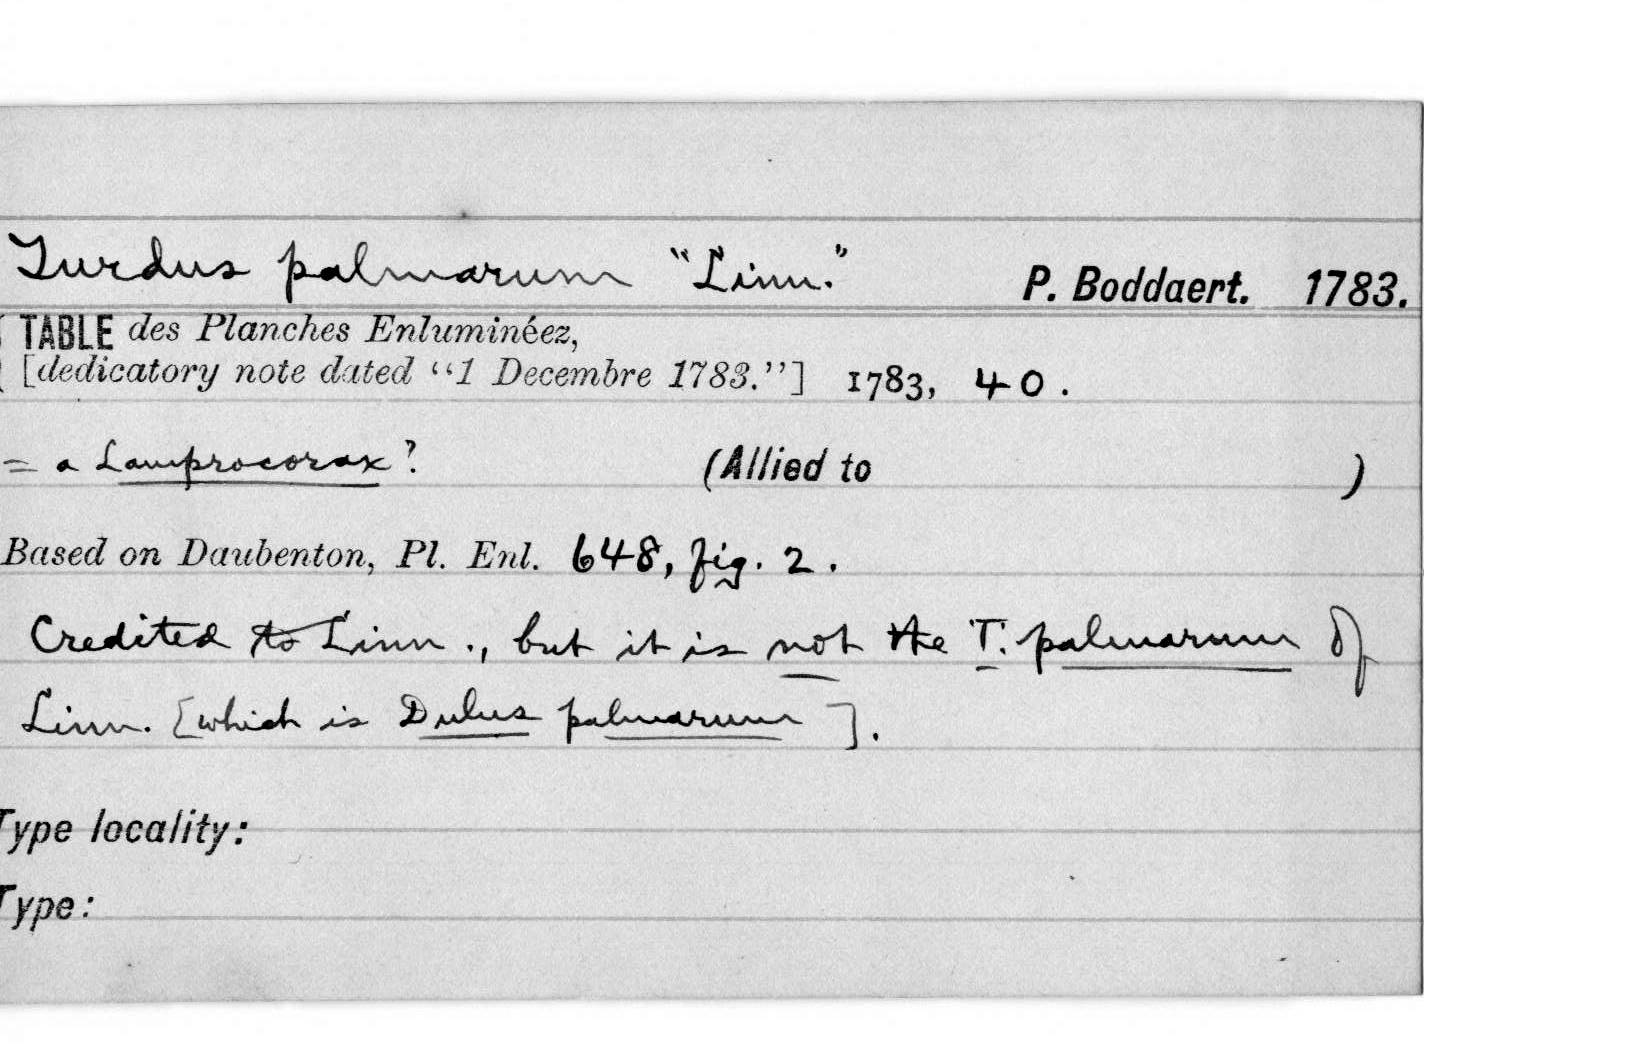 Turdus palmarum "Linn." P. Boddaert. 1783.
TABLE des Planches Enluminéez,
[dedicatory note dated "1 Decembre 1783."] 1783, 40.
= a Lamprocorax? (Allied to )
Based on Daubenton, Pl. Enl. 648, fig. 2.
Credited to Linn., but it is not the T. palmarum of
Linn. [which is Dulus palmarum].
Type locality:
Type: